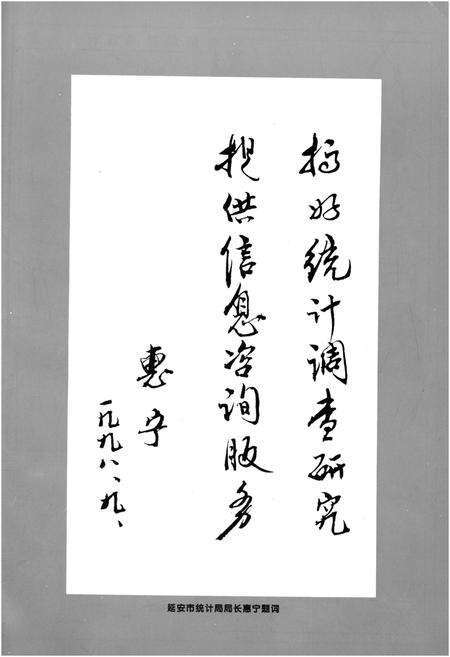 搞好统计调查研究
提供信息咨询服务
惠宁
一九九八、九、
延安市统计局局长惠宁题词